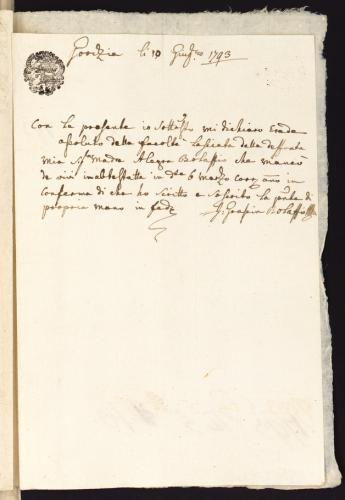 Gorizia li 10 Giug.no 1793
Con la presente io Sottosto mi dichiaro Erede
assoluto della facoltà lasciata della deffonta
mia Sra Madre Alegra Bolaffio che mancò
de vivi inabtestatta in dta 6 marzo corr anno in
conferma di che ho scritto e sobscrito la pnte di
propria mano in fede
Bolaffio